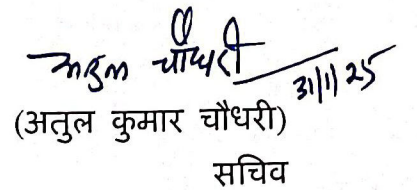 अतुल चौधरी 31/1/25
(अतुल कुमार चौधरी)
सचिव